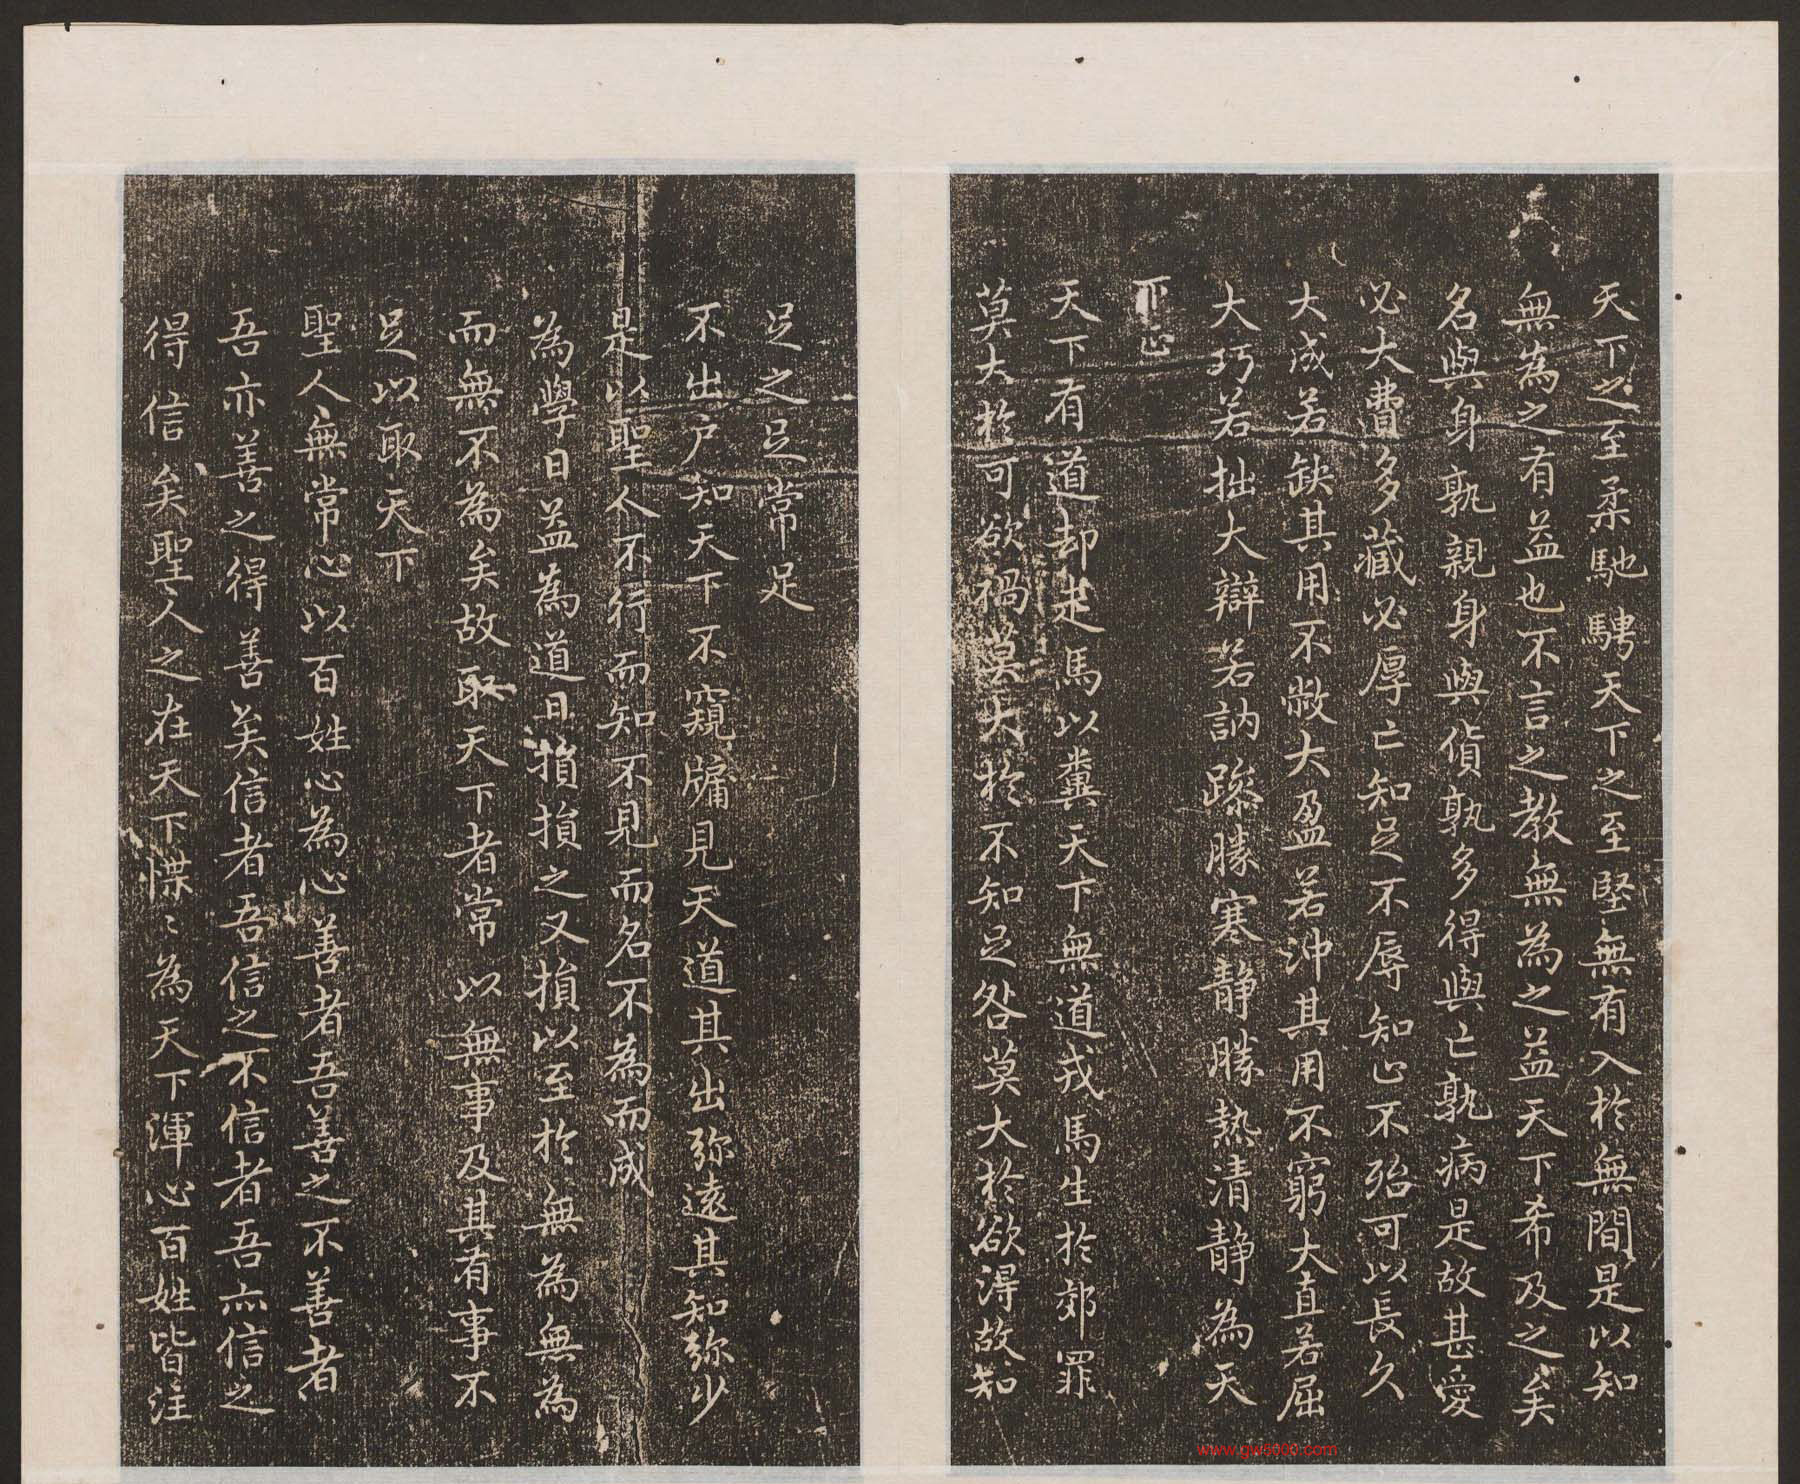 天下之至柔馳騁天下之至堅無有入於無間是以知
無為之有益也不言之教無為之益天下希及之矣
名與身孰親身與貨孰多得與亡孰病是故甚愛
必大費多藏必厚亡知足不辱知止不殆可以長久
大成若缺其用不敝大盈若沖其用不窮大直若屈
大巧若拙大辯若訥躁勝寒靜勝熱清靜為天
下正
天下有道却走馬以糞天下無道戎馬生於郊罪
莫大於可欲禍莫大於不知足咎莫大於欲得故知
足之足常足
不出户知天下不窺牖見天道其出弥遠其知弥少
是以聖人不行而知不見而名不為而成
為學日益為道日損損之又損以至於無為無為
而無不為矣故取天下者常以無事及其有事不
足以取天下
聖人無常心以百姓心為心善者吾善之不善者
吾亦善之得善矣信者吾信之不信者吾亦信之
得信矣聖人之在天下惵〻為天下渾心百姓皆注
www.gw5000.com